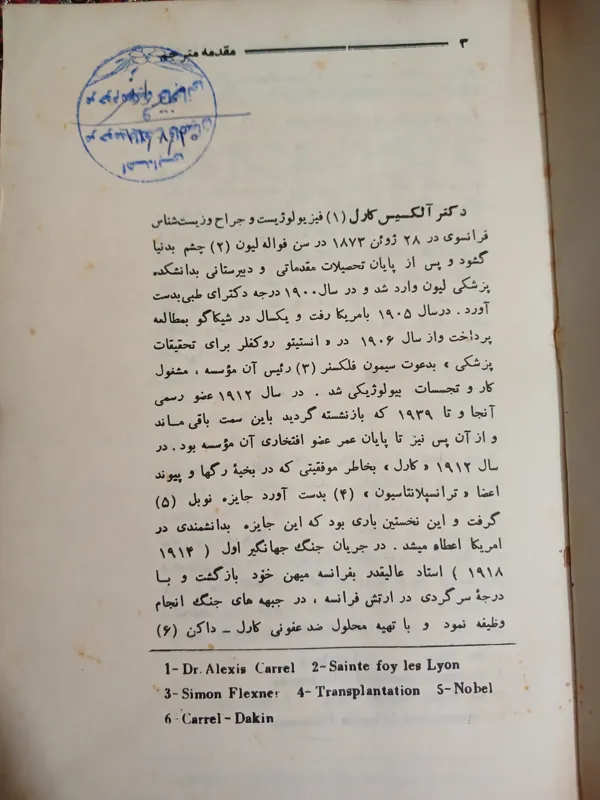 ۳
مقدمه مترجم
دکتر آلکسیس کارل (۱) فیزیولوژیست و جراح وزیست‌شناس
فرانسوی در ۲۸ ژوئن ۱۸۷۳ در سن فواله لیون (۲) چشم بدنیا
گشود و پس از پایان تحصیلات مقدماتی و دبیرستانی بدانشکده
پزشکی لیون وارد شد و در سال ۱۹۰۰ درجه دکترای طبی بدست
آورد . درسال ۱۹۰۵ بامریکا رفت و یکسال در شیکاگو بمطالعه
پرداخت واز سال ۱۹۰۶ در « انستیتو روکفلر برای تحقیقات
پزشکی » بدعوت سیمون فلکسنر (۳) رئیس آن مؤسسه ، مشغول
کار و تجسسات بیولوژیکی شد . در سال ۱۹۱۲ عضو رسمی
آنجا و تا ۱۹۳۹ که بازنشسته گردید باین سمت باقی ماند
و از آن پس نیز تا پایان عمر عضو افتخاری آن مؤسسه بود . در
سال ۱۹۱۲ « کارل » بخاطر موفقیتی که در بخیهٔ رگها و پیوند
اعضا « ترانسپلانتاسیون » (۴) بدست آورد جایزه نوبل (۵)
گرفت و این نخستین باری بود که این جایزه بدانشمندی در
امریکا اعطاء میشد . در جریان جنگ جهانگیر اول ( ۱۹۱۴
۱۹۱۸ ) استاد عالیقدر بفرانسه میهن خود بازگشت و با
درجهٔ سرگردی در ارتش فرانسه ، در جبهه های جنگ انجام
وظیفه نمود و با تهیه محلول ضد عفونی کارل ـ داکن (۶)
1- Dr. Alexis Carrel 2- Sainte foy les Lyon
3- Simon Flexner 4- Transplantation 5- Nobel
6- Carrel - Dakin